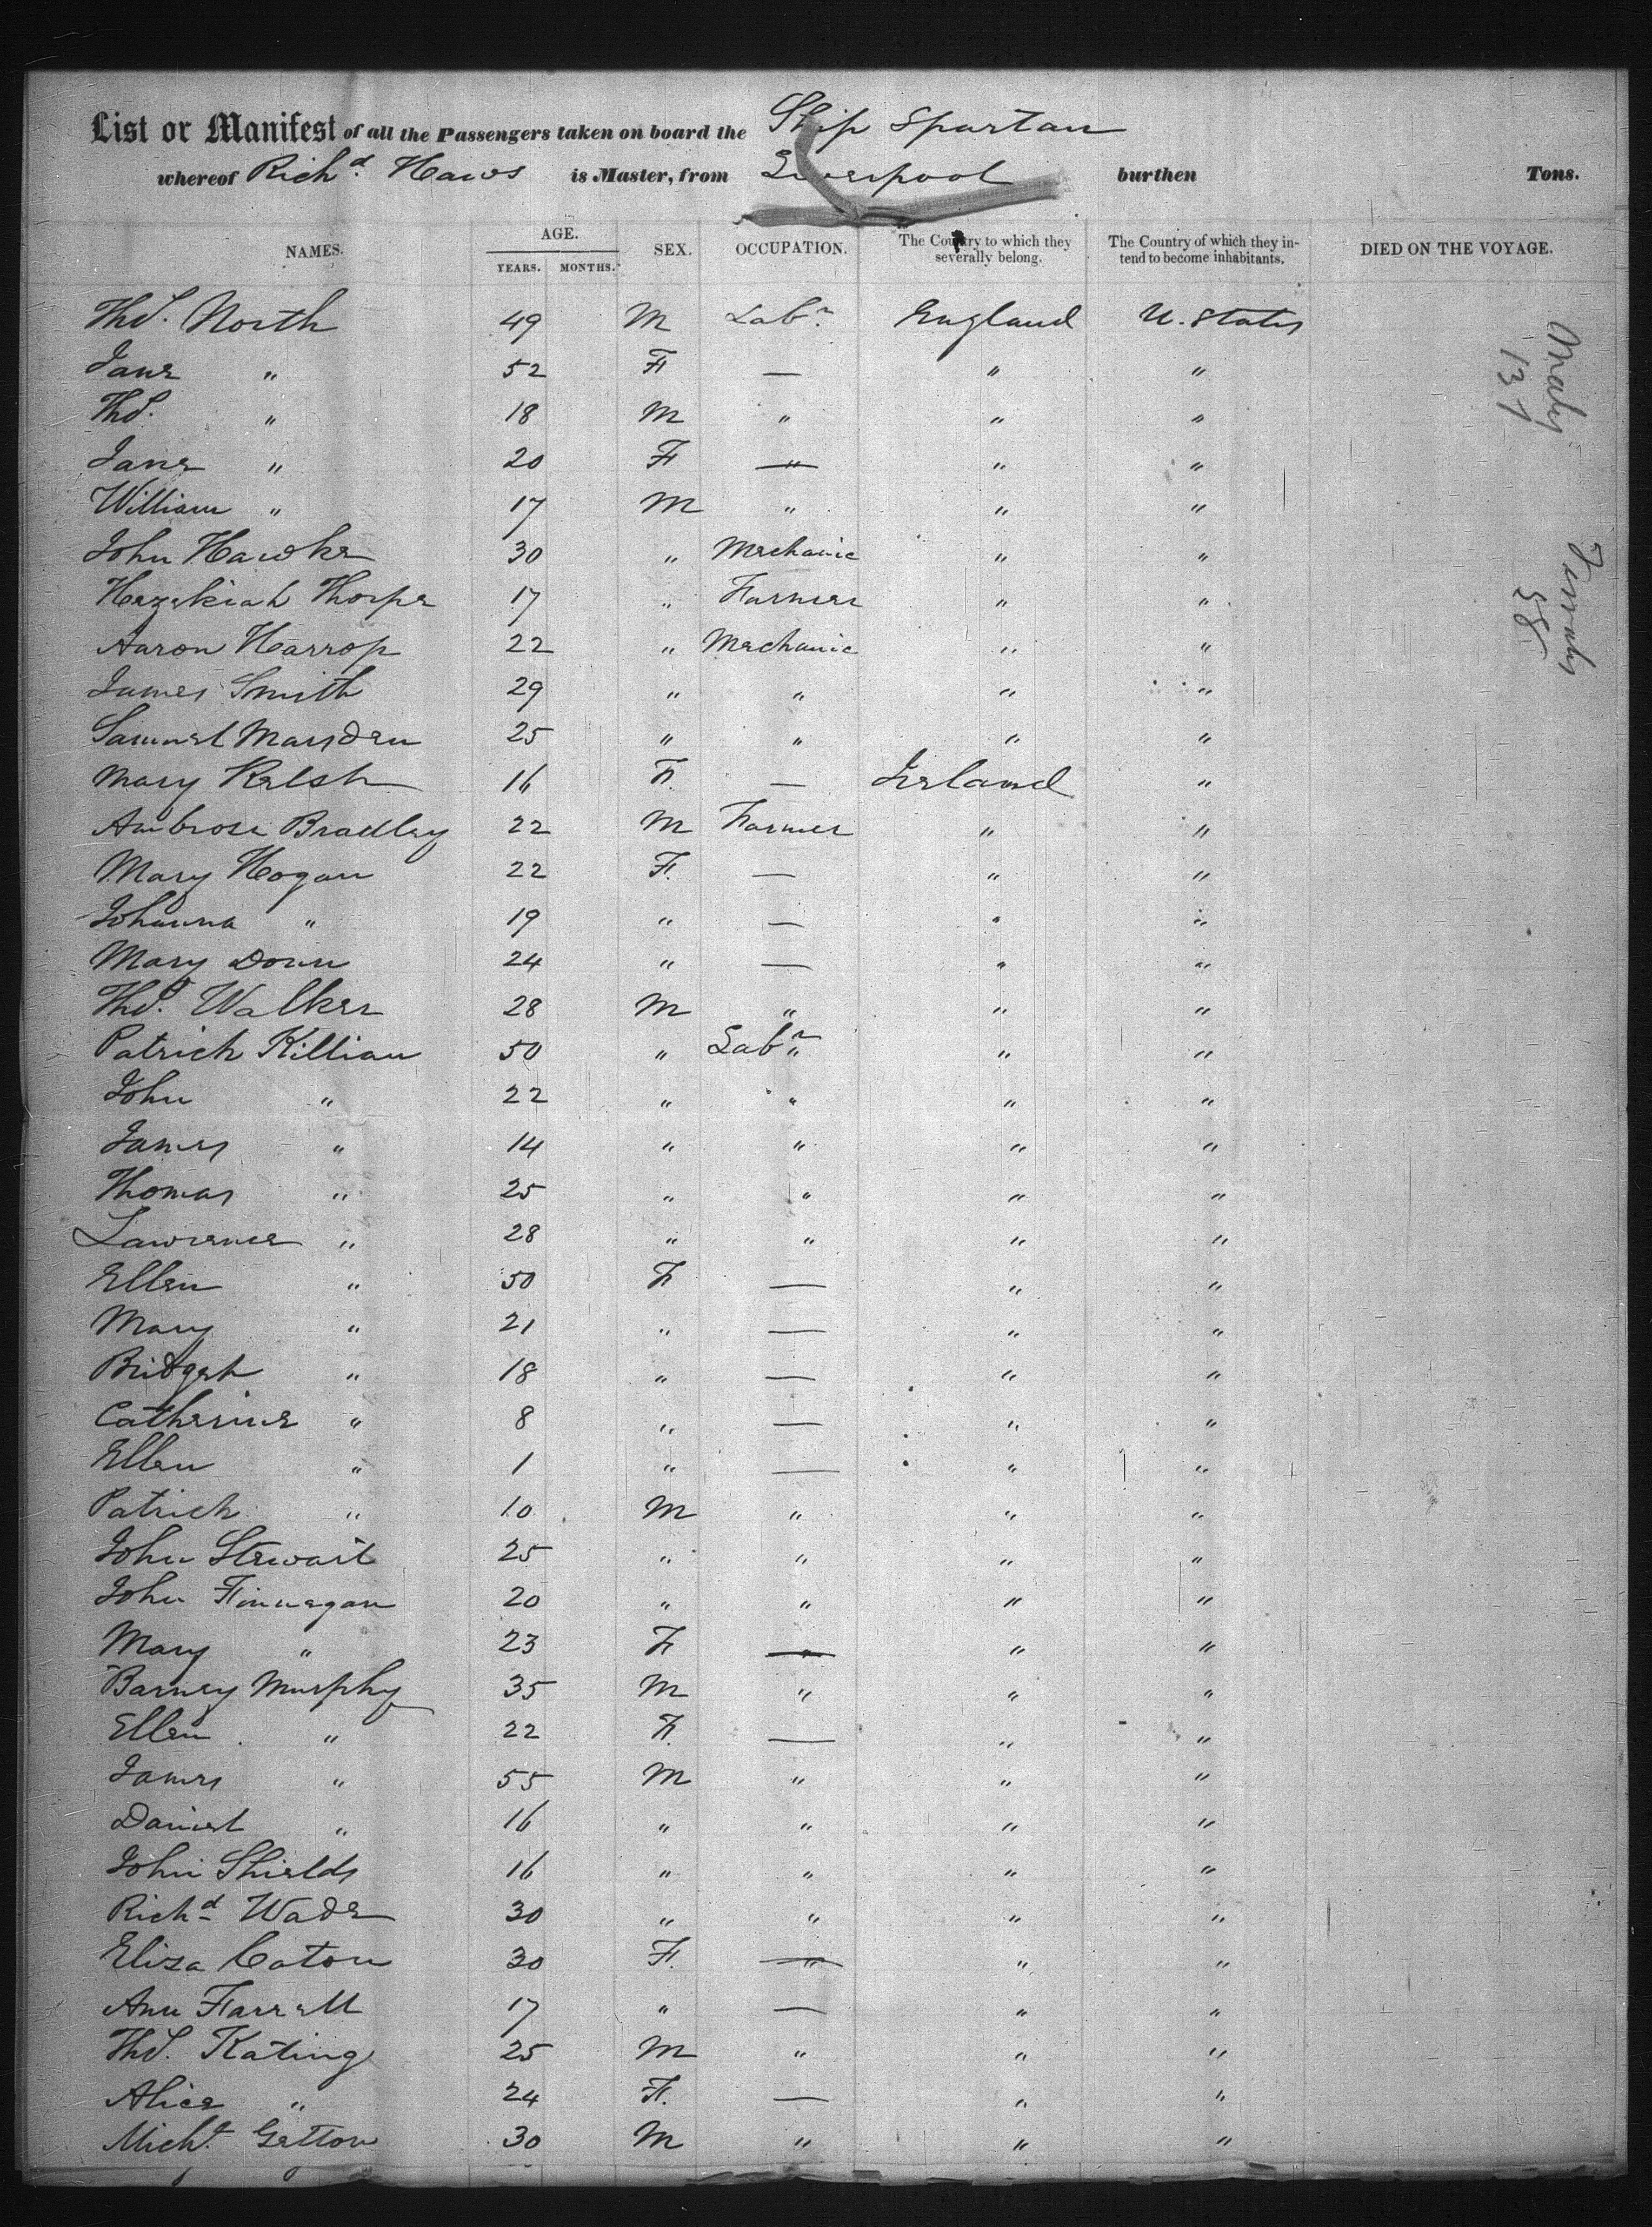 List or Manifest of all the Passengers taken on board the Ship Spartan
whereof Richd. Haws is Master, from Liverpool burthen Tons.
NAMES. AGE. YEARS. MONTHS. SEX. OCCUPATION. The Country to which they severally belong. The Country of which they intend to become inhabitants. DIED ON THE VOYAGE.
Thos. North 49 M Labr. England U. States
Jane " 52 F — " "
Thos. " 18 M " " "
Jane " 20 F — " "
William " 17 M " " "
John Hawke 30 " Mechanic " "
Hezekiah Thorpe 17 " Farmer " "
Aaron Harrop 22 " Mechanic " "
James Smith 29 " " " "
Samuel Marsden 25 " " " "
Mary Kelsh 16 F. — Ireland "
Ambrose Bradley 22 M Farmer " "
Mary Hogan 22 F. — " "
Johanna " 19 " — " "
Mary Donn 24 " — " "
Thos. Walker 28 M " " "
Patrick Killian 50 " Labr. " "
John " 22 " " " "
James " 14 " " " "
Thomas " 25 " " " "
Lawrence " 28 " " " "
Ellen " 50 F — " "
Mary " 21 " — " "
Bridget " 18 " — " "
Catherine " 8 " — " "
Ellen " 1 " — " "
Patrick " 10 M " " "
John Stewart 25 " " " "
John Finnegan 20 " " " "
Mary " 23 F — " "
Barney Murphy 35 M " " "
Ellen " 22 F. — " "
James " 55 M " " "
Daniel " 16 " " " "
John Shields 16 " " " "
Richd. Wade 30 " " " "
Eliza Caton 30 F. — " "
Ann Farrell 17 " — " "
Thos. Kating 25 M " " "
Alice " 24 F. — " "
Michl. Getton 30 M " " "
Males
137
Females
58